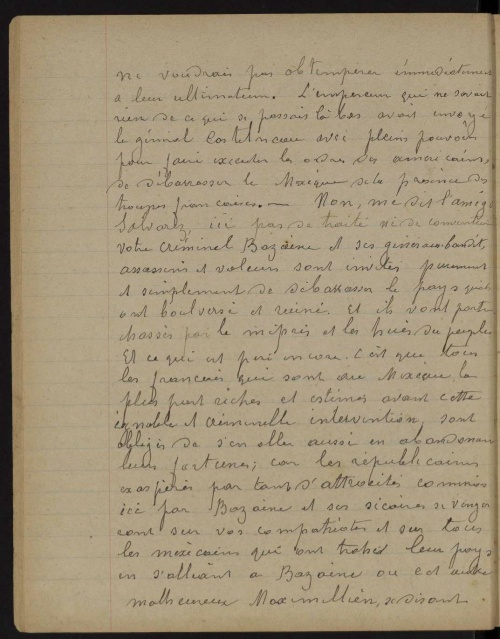 ne voudrais pas obtempérer immédiatement
a leur ultimatum. L'empereur qui ne savait
rien de ce qui se passait là bas avait envoyé
le général Castelneau avec pleins pouvoirs
pour faire executer les ordres des américains,
de débarrasser le Mexique de la présence des
troupes françaises. — Non, me dit l'ami
Salvarez, ici pas de traité ni de convention
votre criminel Bazaine et ses généraux bandits,
assassins et voleurs sont invités purement
et simplement de débarrasser le pays qu'ils
ont boulversé et ruiné. Et ils vont partir
chassés par le mépris et les huées du peuple
Et ce qui est pire encore c'est que tous
les français qui sont au Mexique, la
plus part riches et estimés avant cette
ignoble et criminelle intervention, sont
obligés de s'en aller aussi en abandonnant
leurs fortunes; car les républicains
exaspérés par tant d'attrocités commises
ici par Bazaine et ses sicaires se vengeront
sur vos compatriotes et sur tous
les mexicains qui ont trahis leur pays
en s'alliant a Bazaine ou cet autre
malheureux Maximillien, se disant